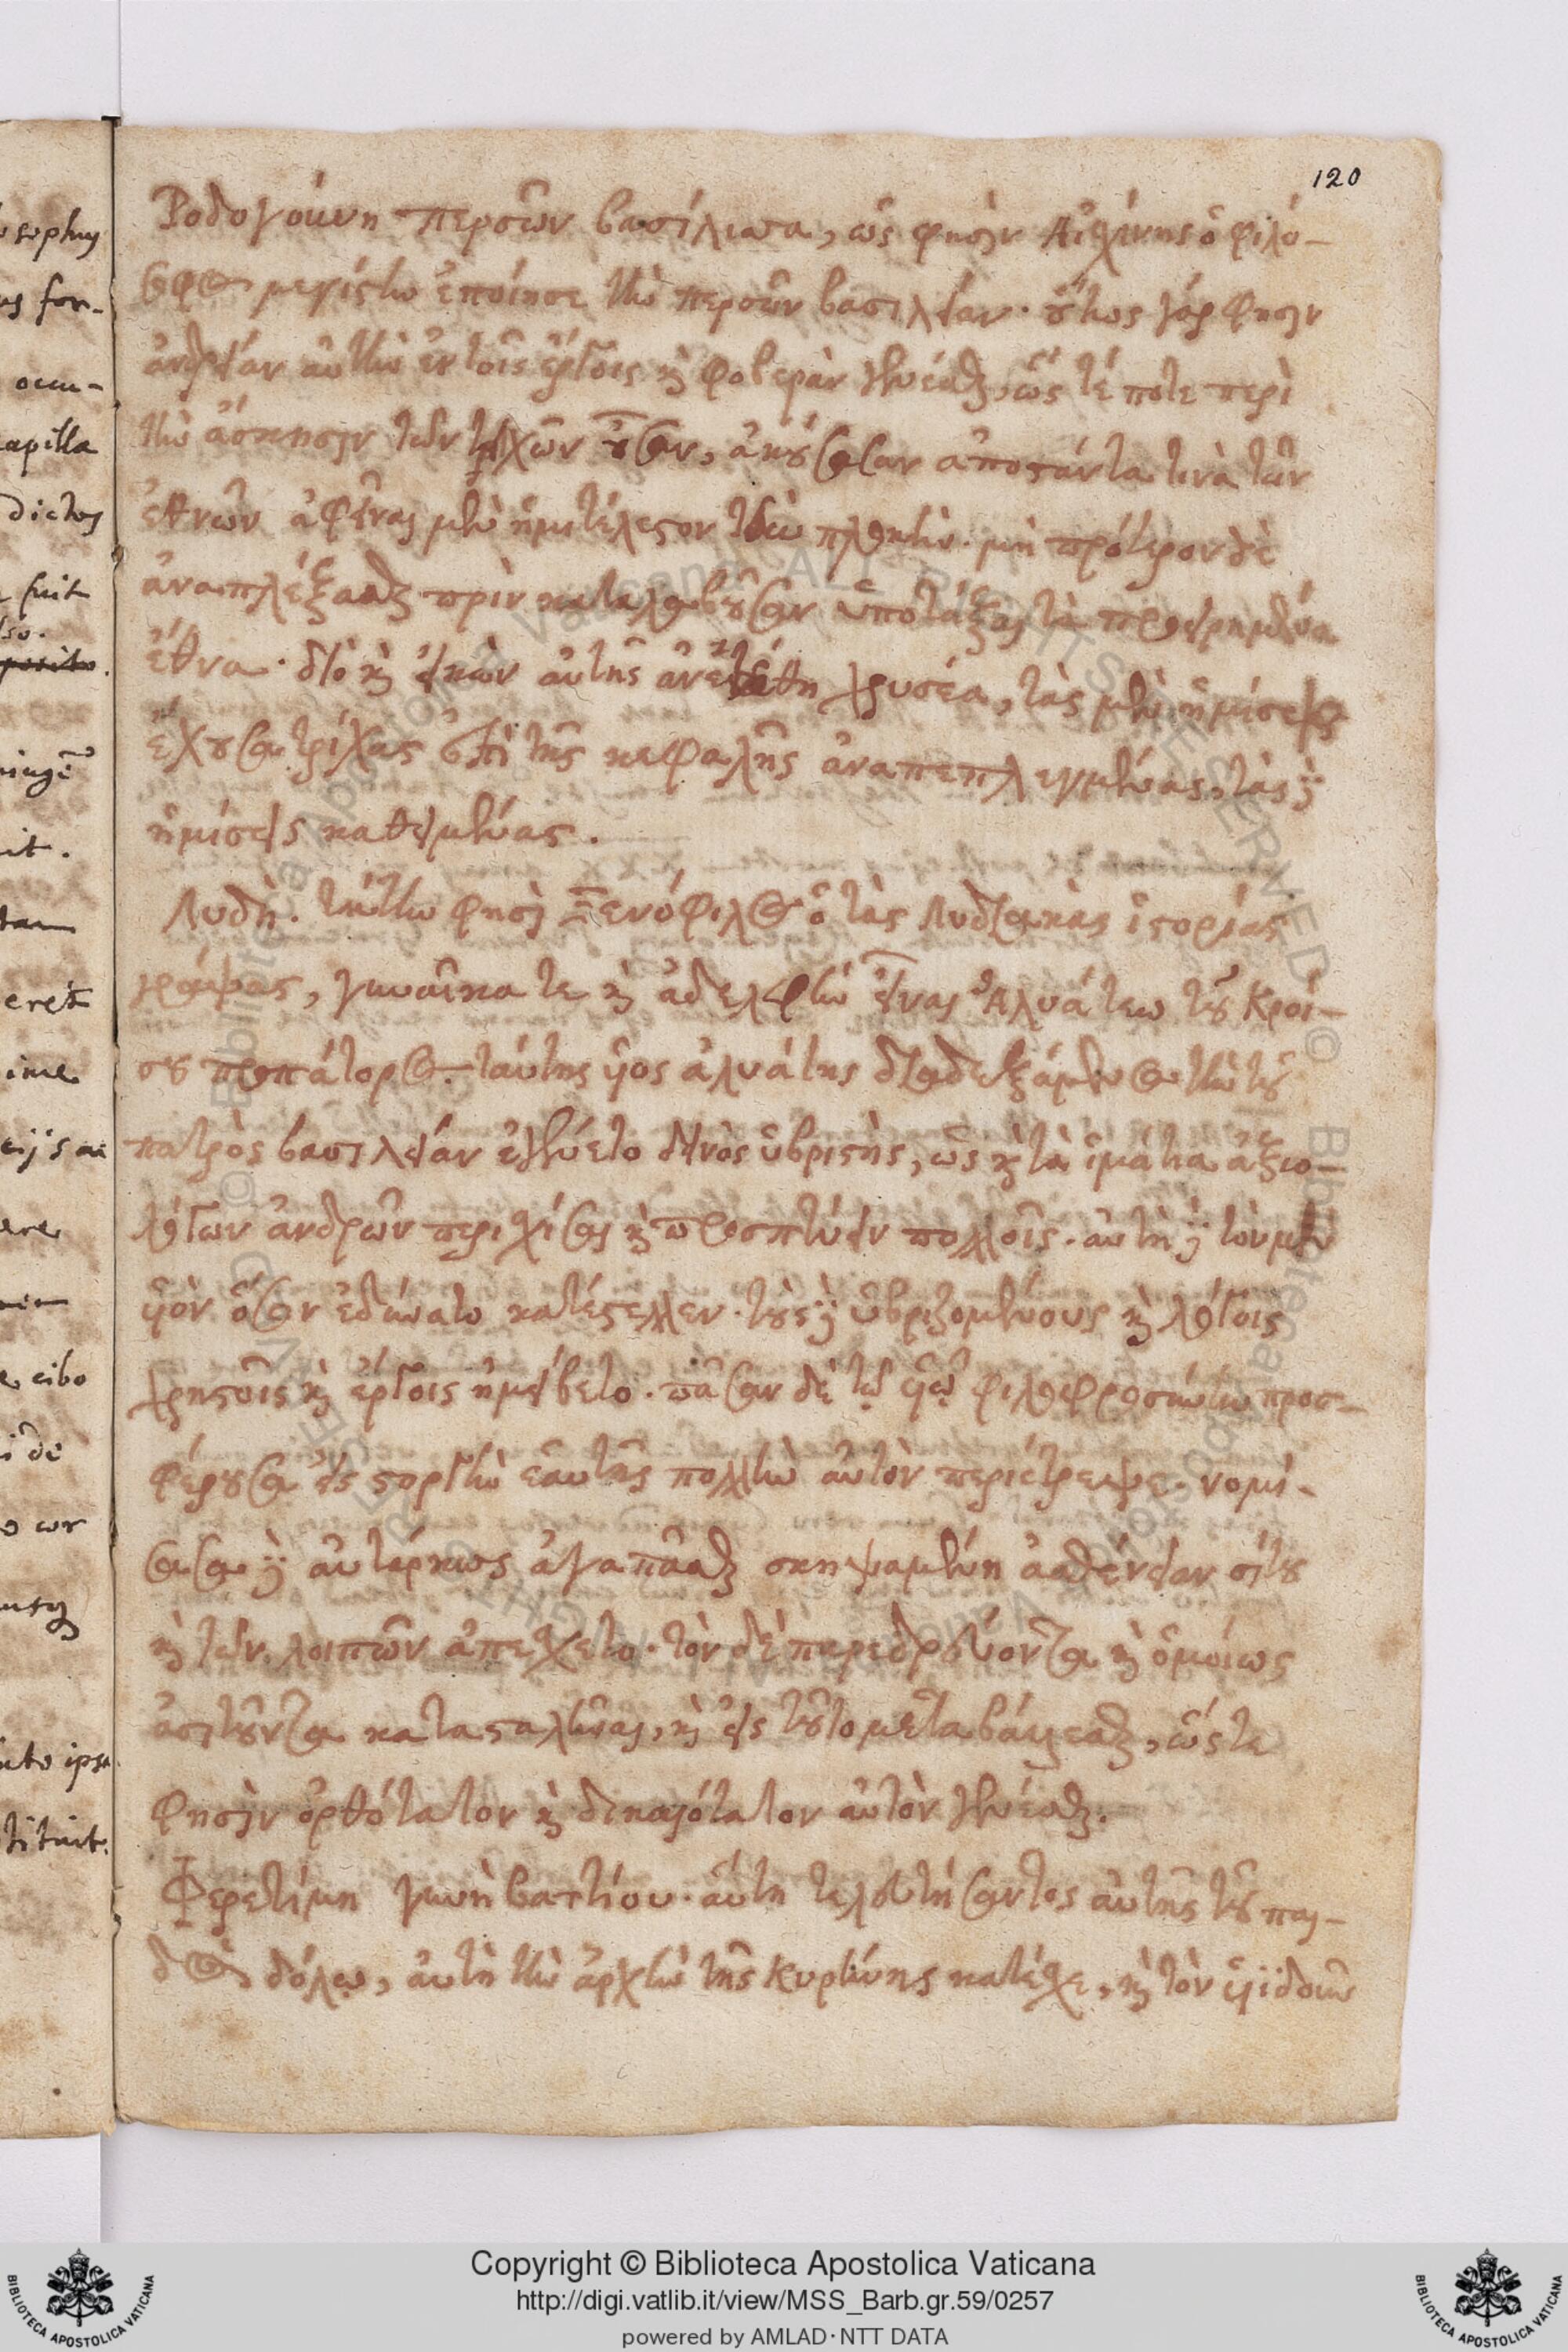 120
Ῥοδογούνη περσῶν βασίλισσα, ὥς φησιν Αἰσχίνης ὁ φιλό-
σοφος μεγίστην ἐποίησε τὴν περσῶν βασιλείαν· οὕτως γάρ φησιν
ἀνδρείαν αὐτὴν ἐν τοῖς ἔργοις καὶ φοβερὰν γενέσθαι, ὥς τέ ποτε περὶ
τὴν ἄσκησιν τῶν τριχῶν οὖσαν, ἀκούσασαν ἀποστάντα τινὰ τῶν
ἐθνῶν ἀφεῖναι μὲν ἡμιτέλεστον τὴν πλοκήν· μὴ πρότερον δὲ
ἀναπλέξασθαι πρὶν καταλαβοῦσαν ὑποτάξαι τὰ προειρημένα
ἔθνα· διὸ καὶ εἰκὼν αὐτῆς ἀνετέθη χρυσέα, τὰς μὲν ἡμίσεις
ἔχουσα τρίχας ἐπὶ τῆς κεφαλῆς ἀναπεπλεγμένας, τὰς δὲ
ἡμίσεις καθειμένας.
Λυδή. ταύτην φησὶ Ξενόφιλος ὁ τὰς Λυδιακὰς ἱστορίας
γράψας, γυναῖκα τε καὶ ἀδελφὴν εἶναι Ἀλυάτεω τοῦ Κροί-
σου προπάτορος. ταύτης υἱος ἀλυάτης διαδεξάμενος τὴν τοῦ
πατρὸς βασιλείαν ἐγένετο δεινὸς ὑβριστής, ὡς καὶ τὰ ἱμάτια ἀξιο-
λόγων ἀνδρῶν περισχίσαι καὶ προσπτύειν πολλοῖς. αὐτὴ δὲ τὸν μὲν
υἱὸν ὅσον ἐδύνατο κατέστελλεν· τοὺς δὲ ὑβριζομένους καὶ λόγοις
χρηστοῖς καὶ ἔργοις ἠμείβετο. πᾶσαν δὲ τῷ υἱῷ φιλοφροσύνην προσ-
φέρουσα εἰς στοργὴν ἑαυτῆς πολλὴν αὐτὸν περιέτρεψε. νομί-
σασα δὲ αὐτάρκως ἀγαπᾶσθαι σκηψαμένη ἀσθένειαν σίτου
καὶ τῶν λοιπῶν ἀπείχετο. τὸν δὲ παρεδρεύοντα καὶ ὁμοίως
ἀσιτοῦντα κατασταλῆναι, καὶ εἰς τοῦτο μεταβάλλεσθαι, ὥς τε
φησὶν ὀρθότατον καὶ δικαιότατον αὐτὸν γενέσθαι.
Φερετίμη γυνὴ βαττίου. αὕτη τελευτήσαντος αὐτῆς τοῦ παι-
δὸς δόλῳ, αὐτὴ τὴν ἀρχὴν τῆς Κυρήνης κατέσχε, καὶ τὸν υἱϊδοῦν
Copyright © Biblioteca Apostolica Vaticana
http://digi.vatlib.it/view/MSS_Barb.gr.59/0257
powered by AMLAD·NTT DATA